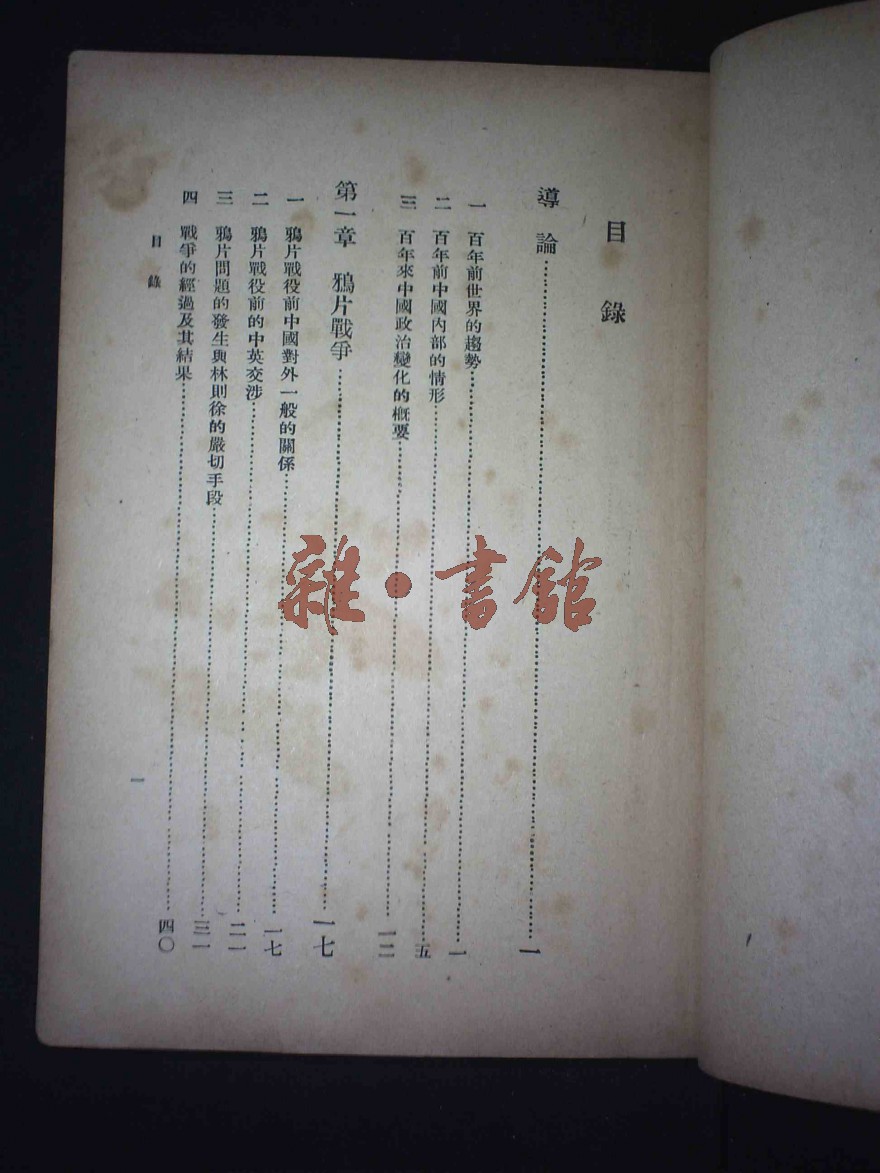 目錄
導論⋯⋯一
一 百年前世界的趨勢⋯⋯一
二 百年前中國內部的情形⋯⋯五
三 百年來中國政治變化的概要⋯⋯一二
第一章 鴉片戰爭⋯⋯一七
一 鴉片戰役前中國對外一般的關係⋯⋯一七
二 鴉片戰役前的中英交涉⋯⋯二一
三 鴉片問題的發生與林則徐的嚴切手段⋯⋯三一
四 戰爭的經過及其結果⋯⋯四〇
目錄
一
雜·書館